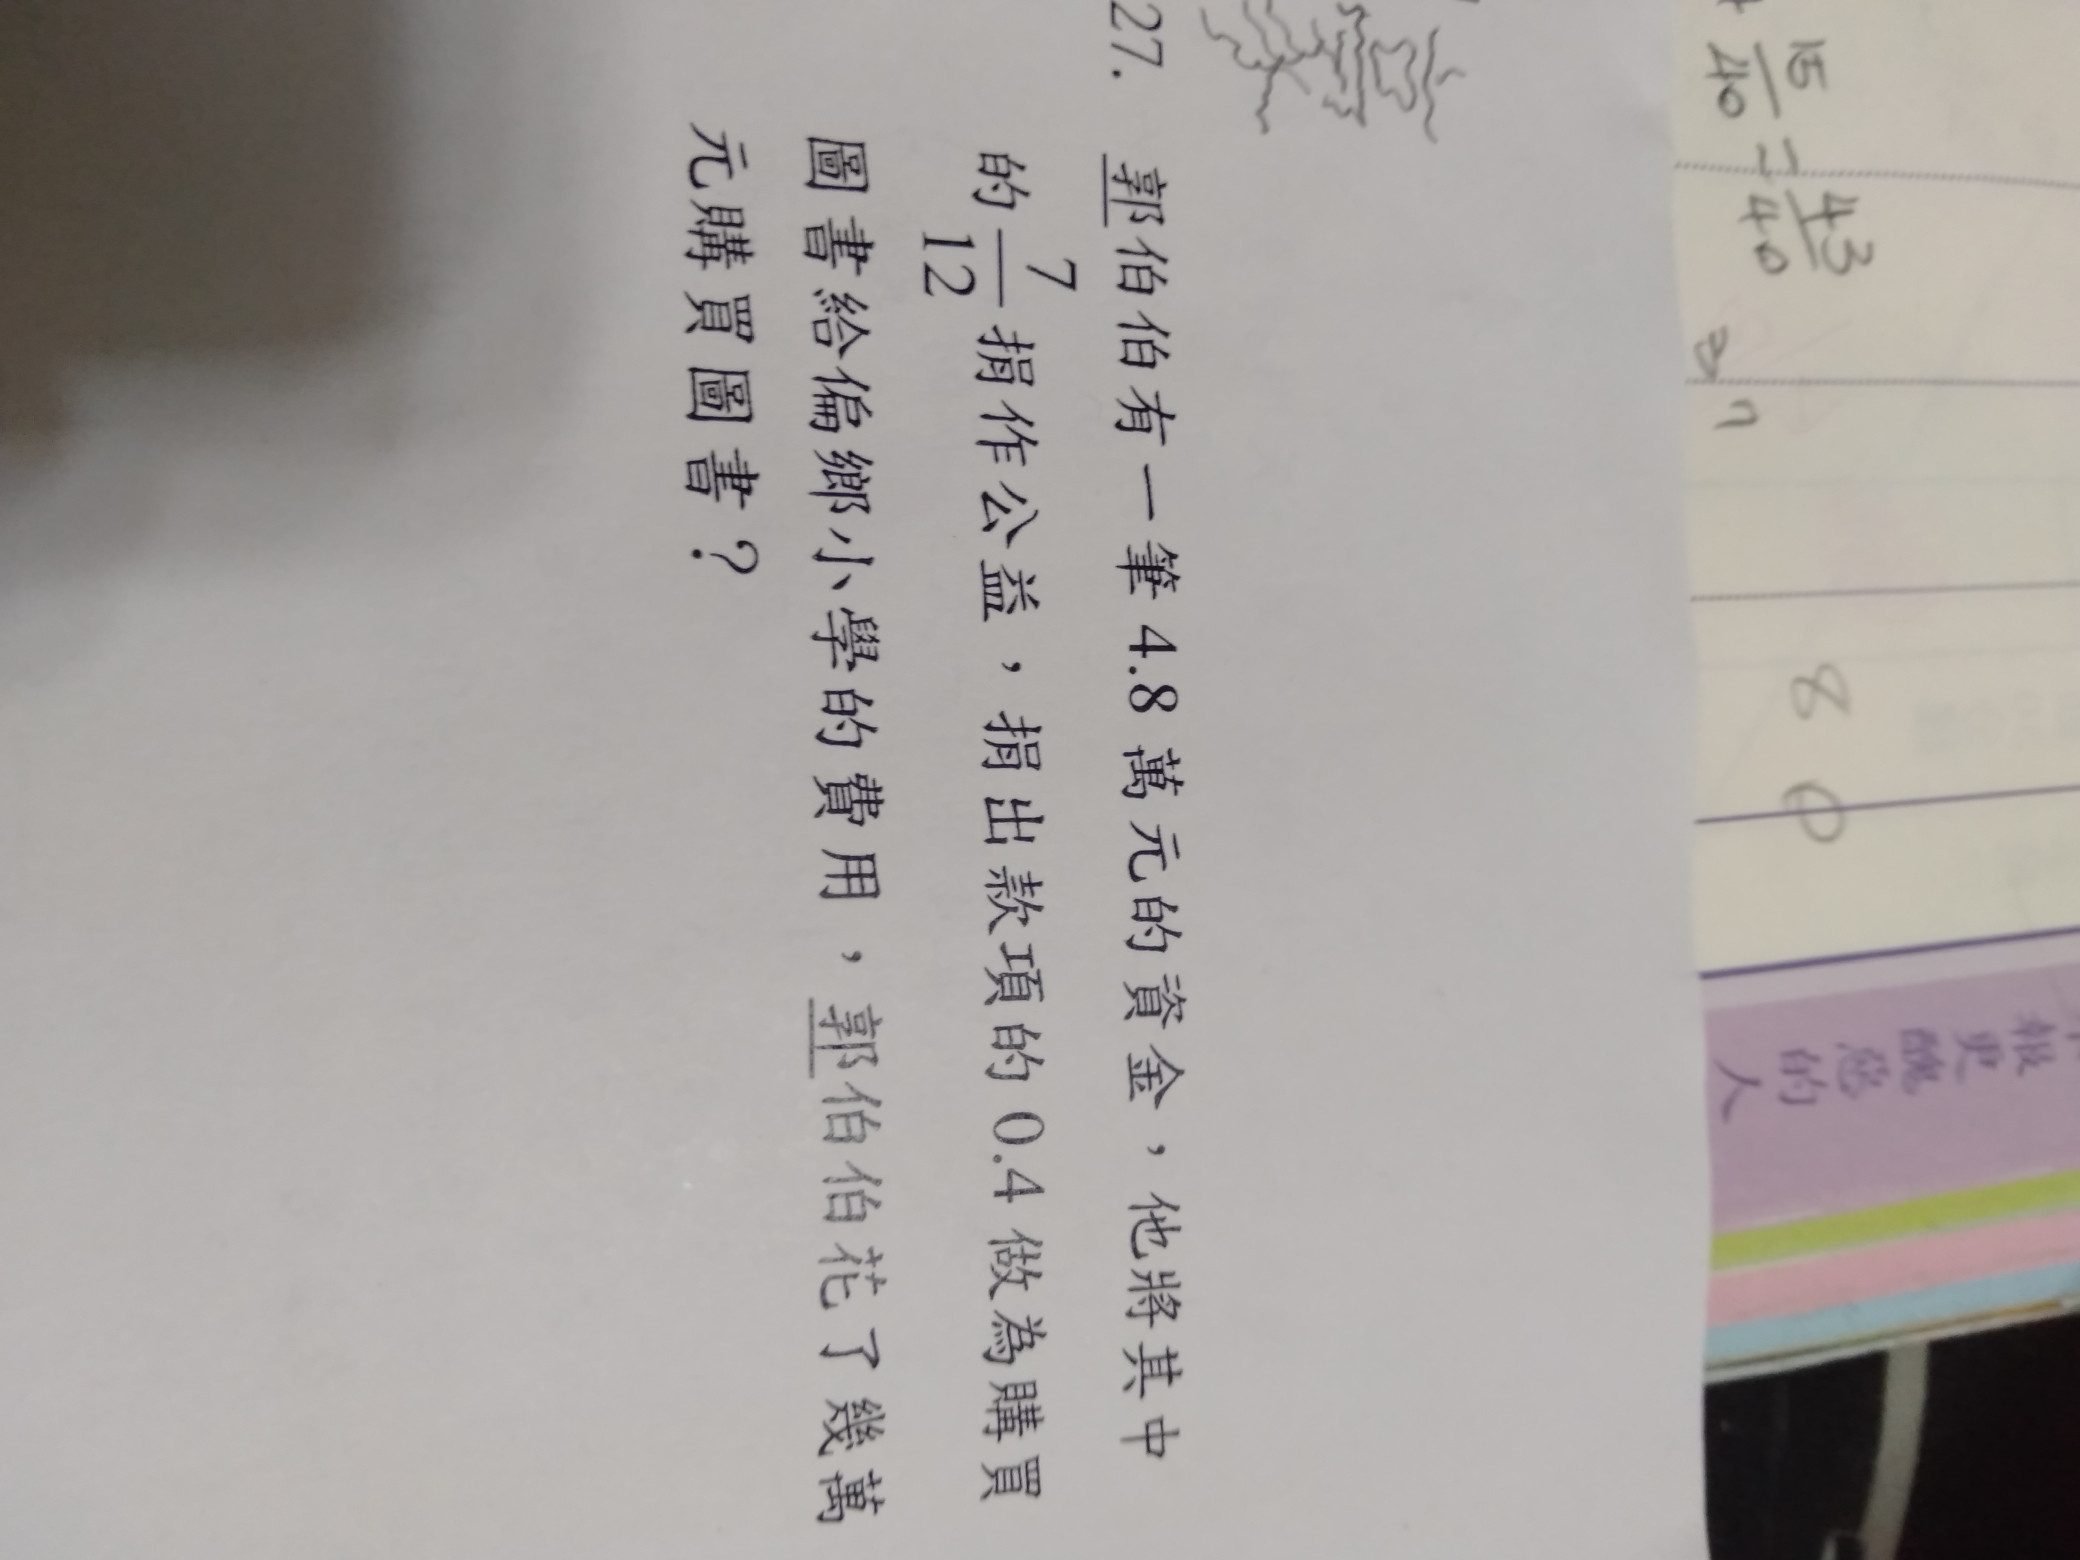 27. 郭伯伯有一筆 4.8 萬元的資金，他將其中
的 7/12 捐作公益，捐出款項的 0.4 做為購買
圖書給偏鄉小學的費用，郭伯伯花了幾萬
元購買圖書？
15/40 = 43/40
8 0
報
更
醜
惡
的
人